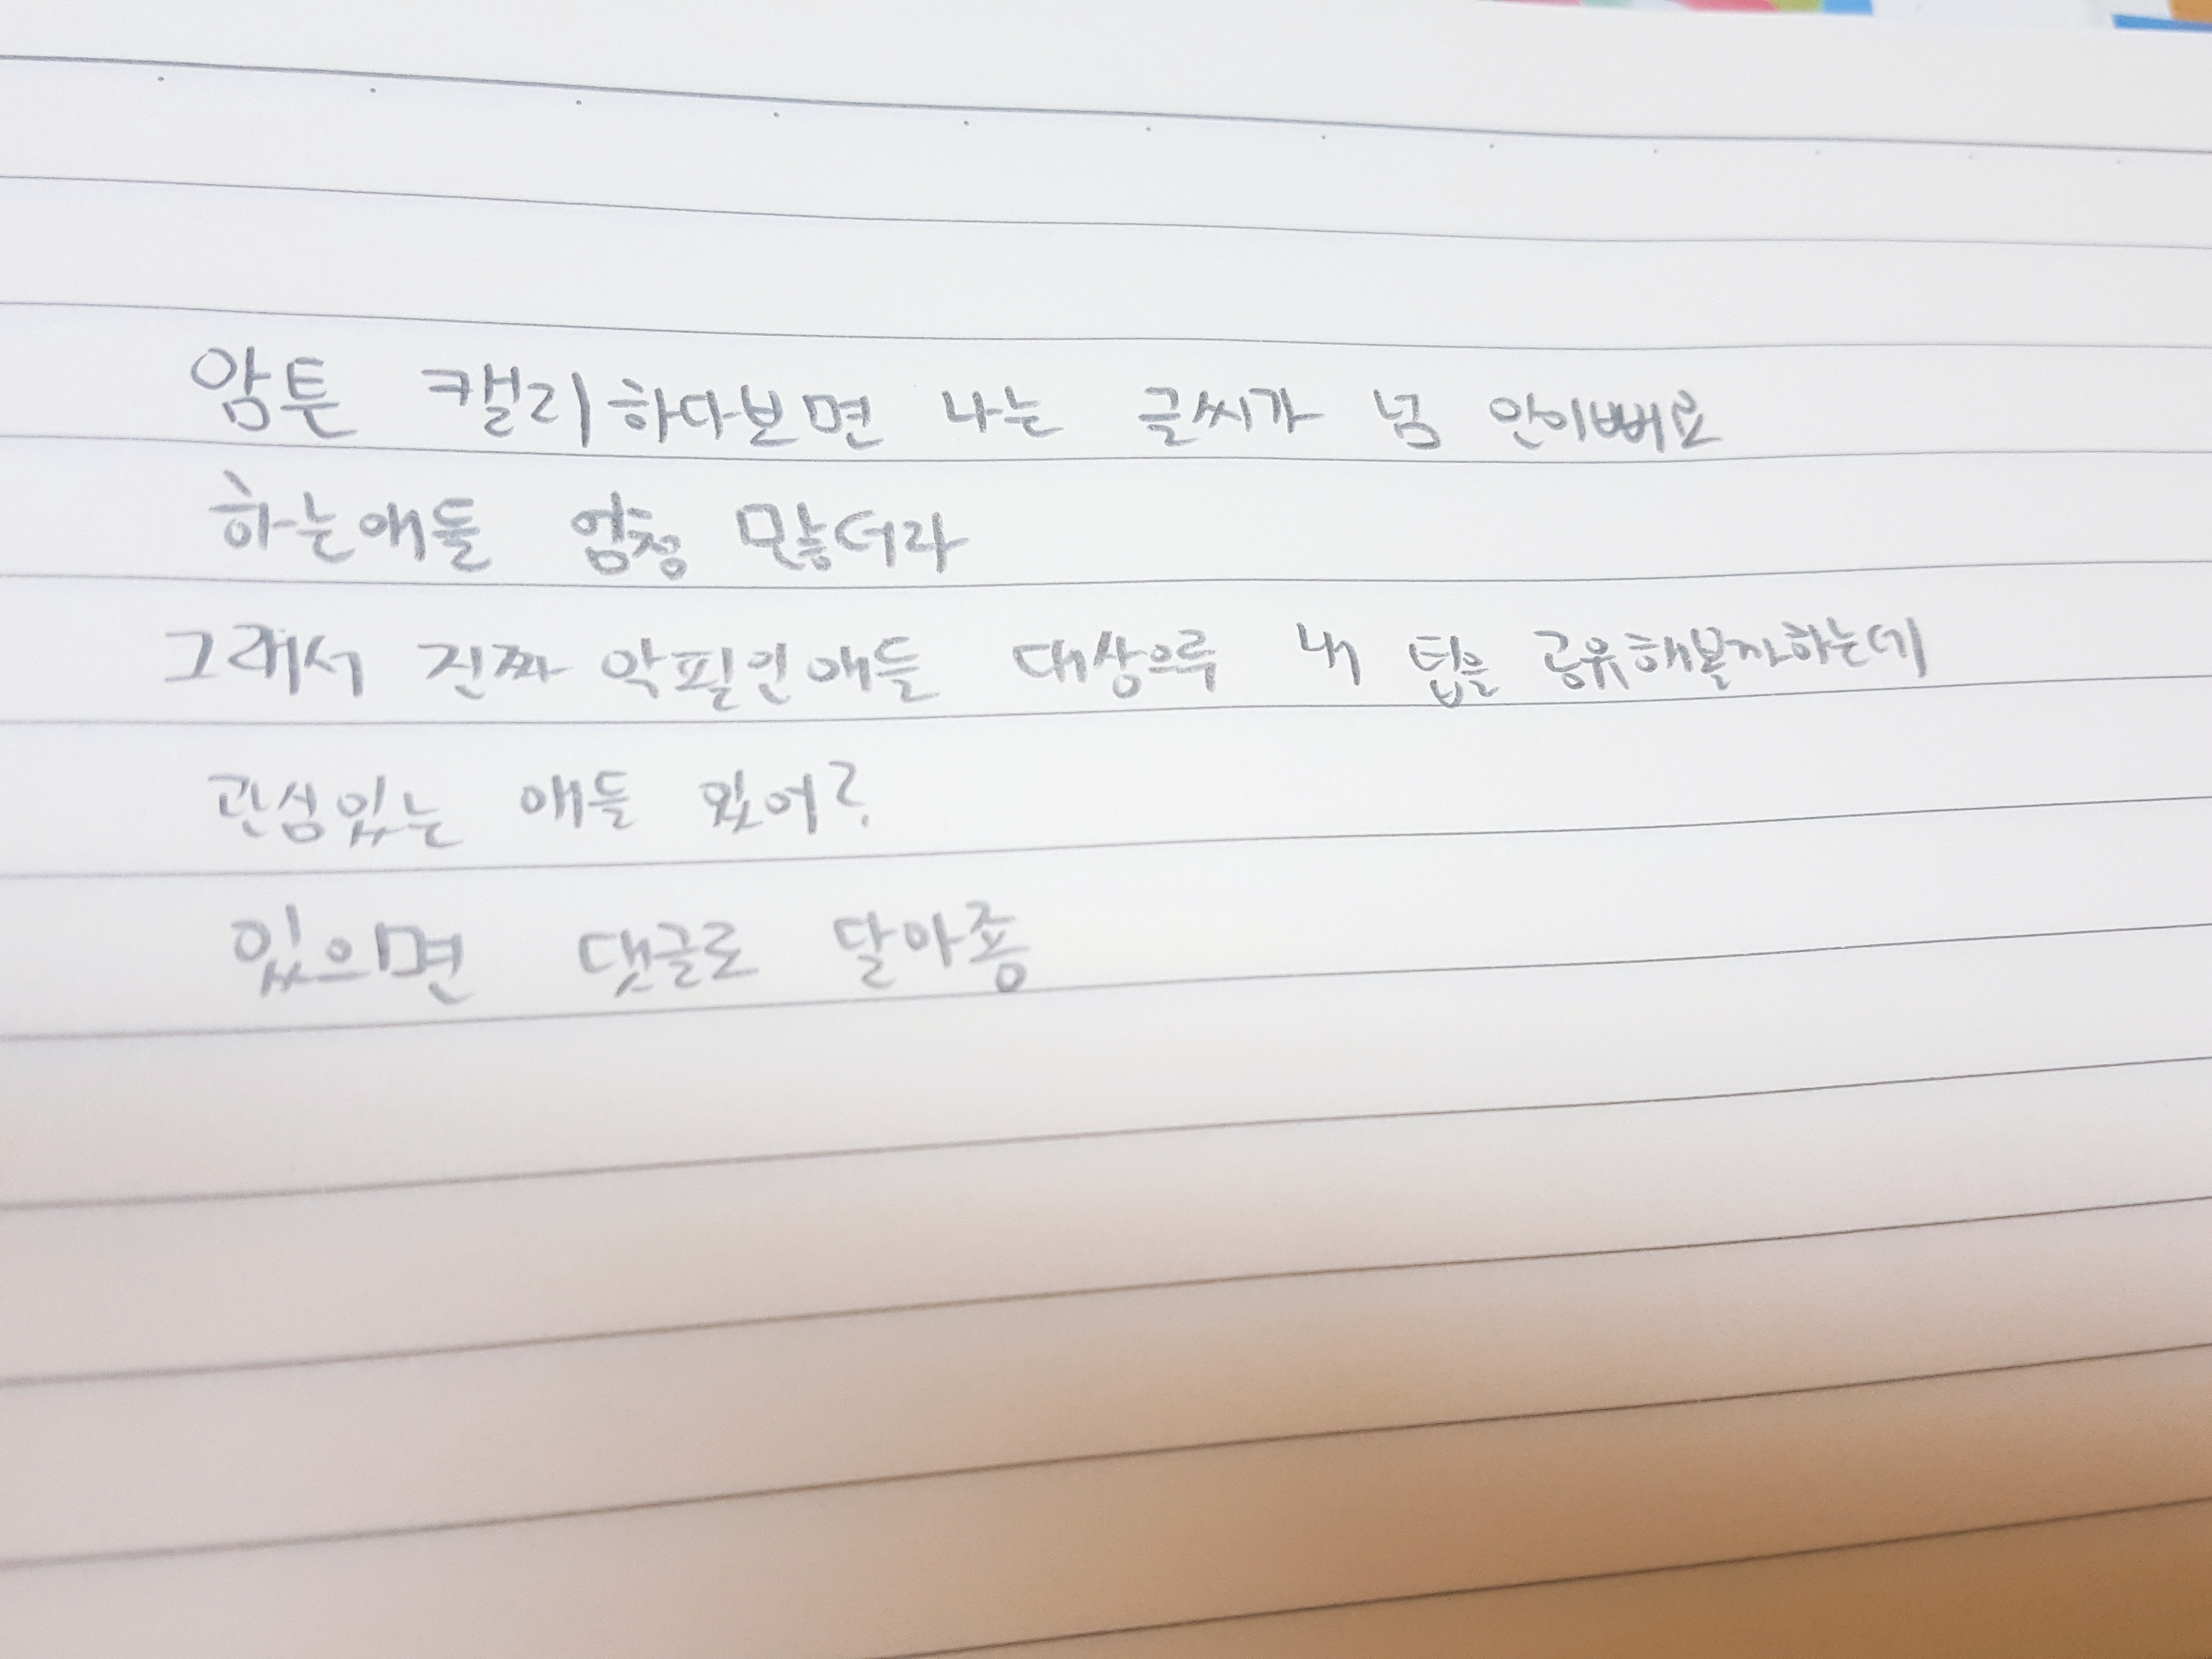 암튼 캘리하다보면 나는 글씨가 넘 안이뻐요
하는애들 엄청 많더라
그래서 진짜 악필인애들 대상으루 내 팁을 공유해볼까하는데
관심있는 애들 있어?
있으면 댓글로 달아죵